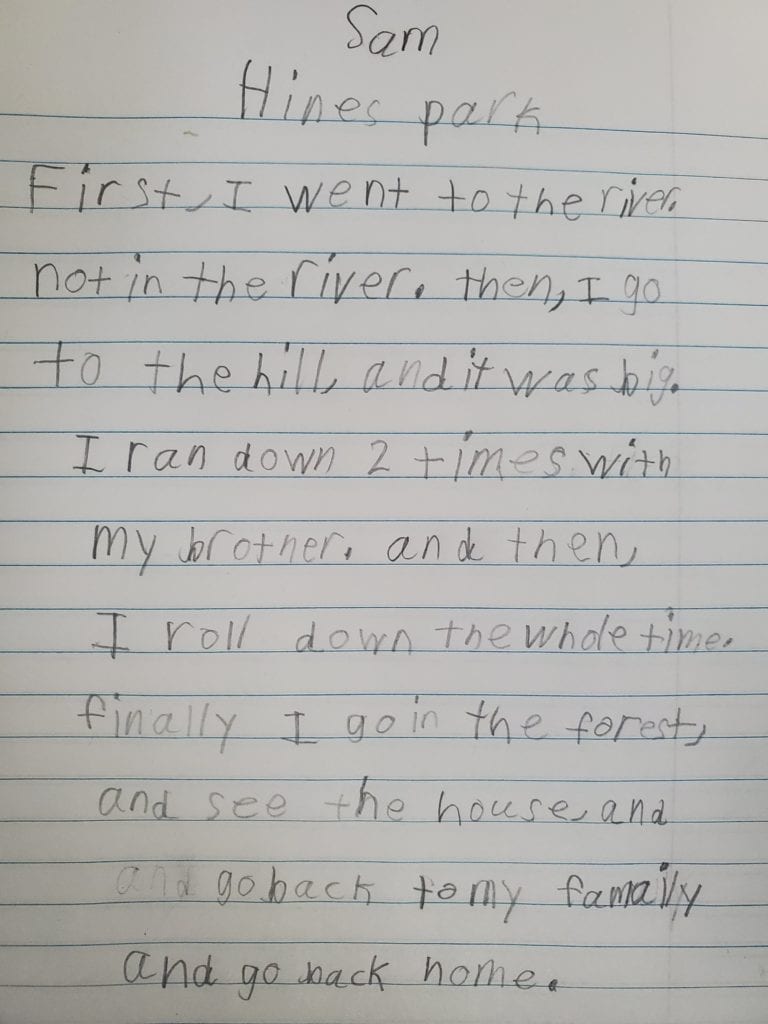 Sam
Hines park
First, I went to the river.
not in the river. then, I go
to the hill, and it was big.
I ran down 2 times with
my brother. and then,
I roll down the whole time.
finally I go in the forest,
and see the house, and
and go back to my famaily
and go back home.